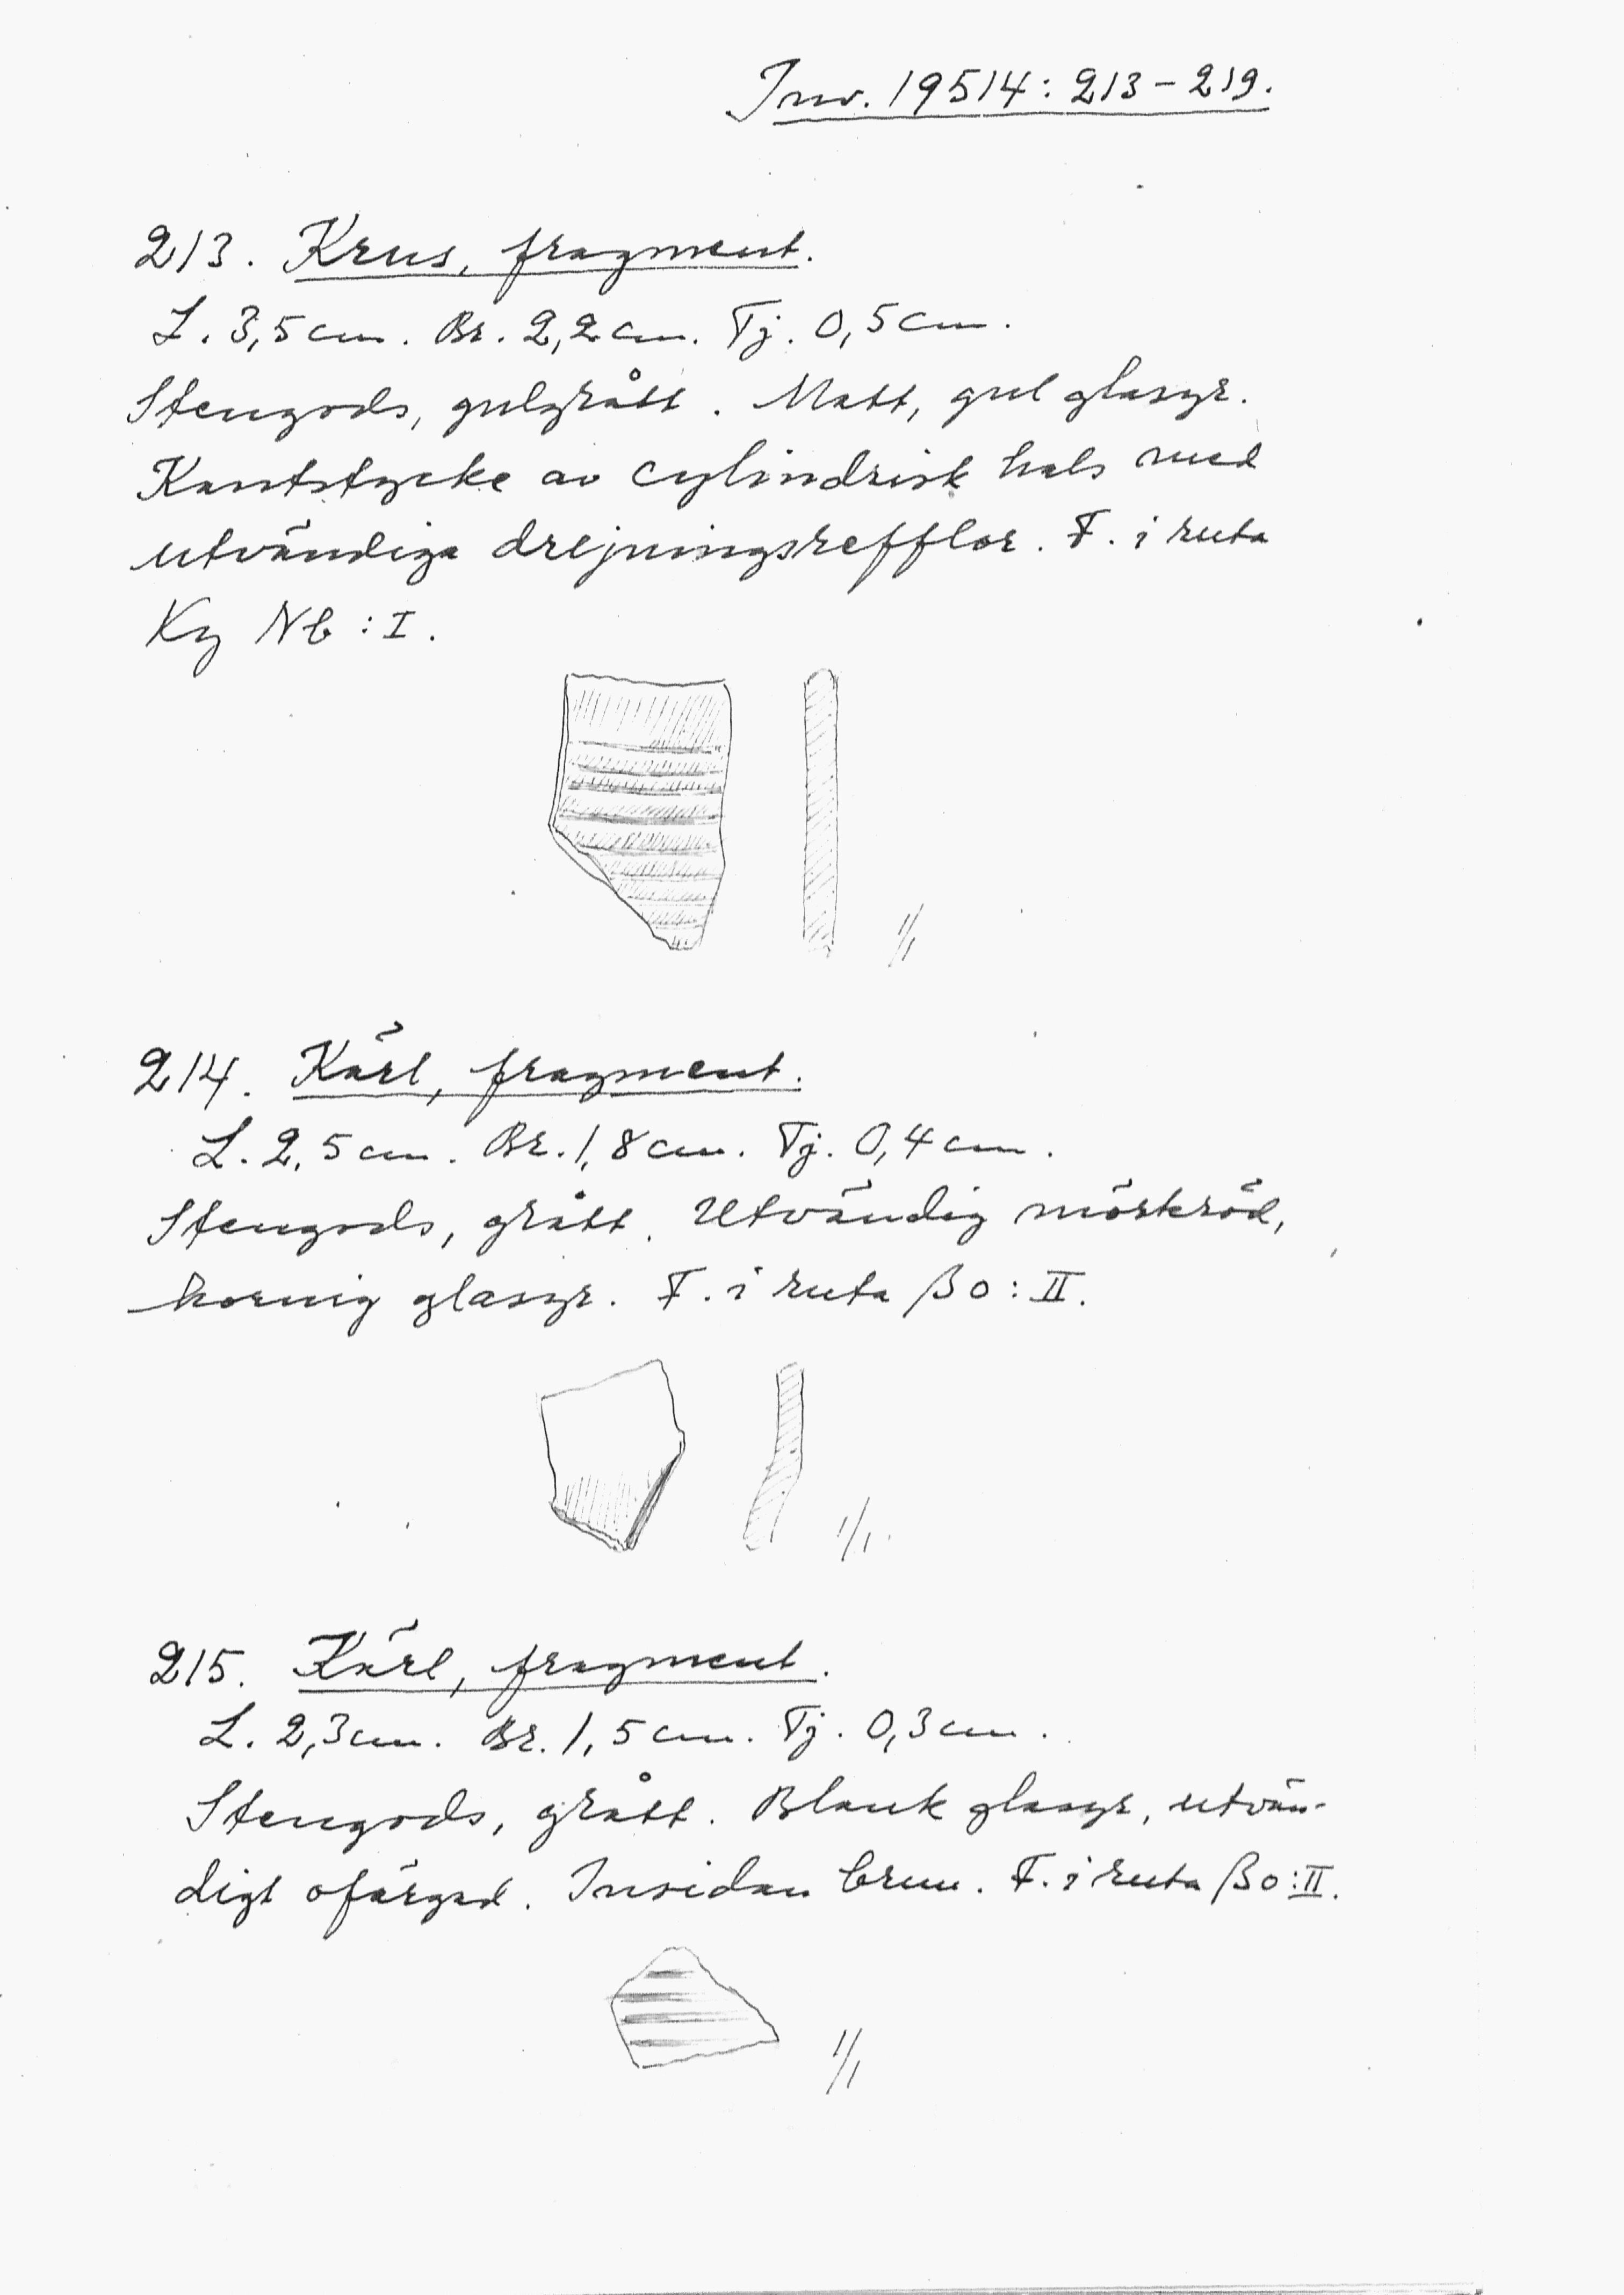 Inv. 19514: 213-219.
213. Krus, fragment.
L. 3,5 cm. Br. 2,2 cm. Tj. 0,5 cm.
Stengods, gulgrått. Matt, gul glasyr.
Kantstycke av cylindrisk hals med
utvändiga drejningsrefflor. F. i ruta
Ky Nb : I.
1/1
214. Kärl, fragment.
L. 2,5 cm. Br. 1,8 cm. Tj. 0,4 cm.
Stengods, grått. Utvändig mörkröd,
kornig glasyr. F. i ruta βo : II.
1/1.
215. Kärl, fragment.
L. 2,3 cm. Br. 1,5 cm. Tj. 0,3 cm.
Stengods, grått. Blank glasyr, utvän-
digt ofärgad. Insidan brun. F. i ruta βo : II.
1/1